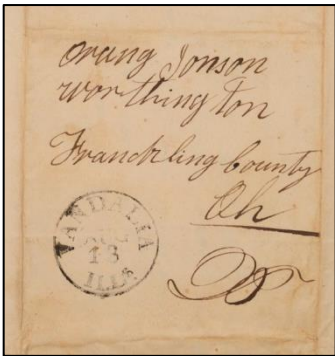 Orang Jonson
worthington
Franckling County
Oh
VANDALIA
13
ILLS